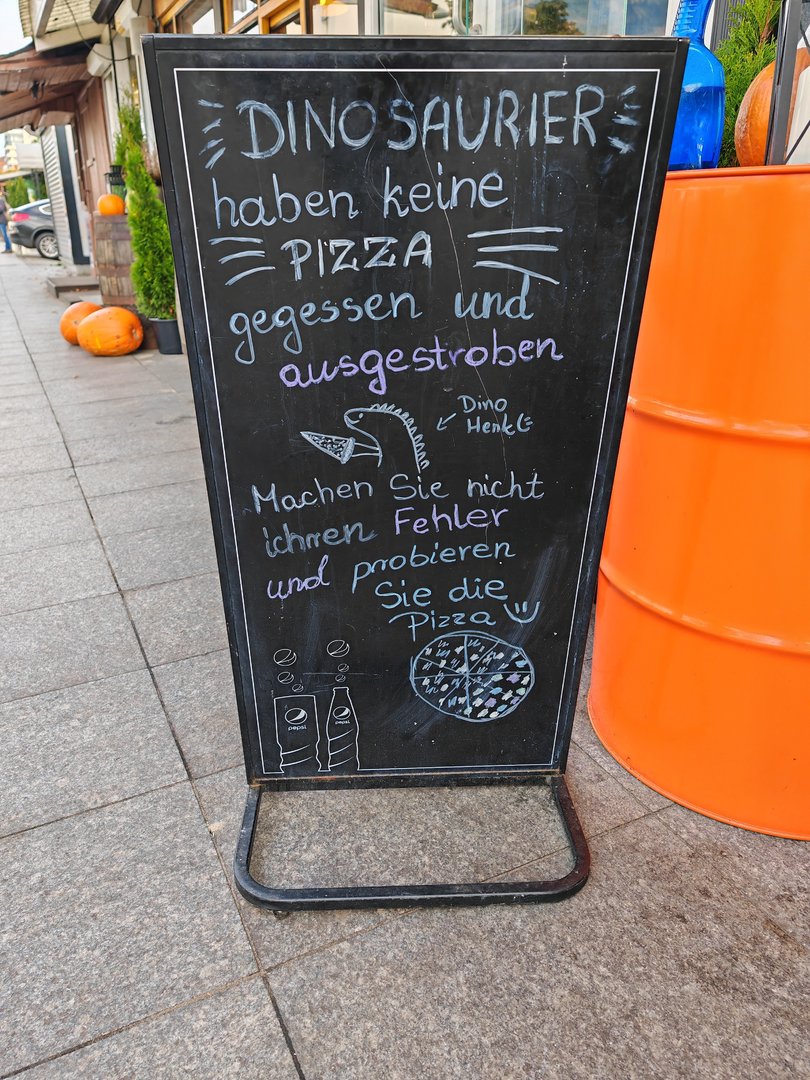 DINOSAURIER
haben keine
PIZZA
gegessen und
ausgestroben
Dino
Machen Sie nicht
Fehler
und probieren
Sie die
Pizza
pepsi pepsi